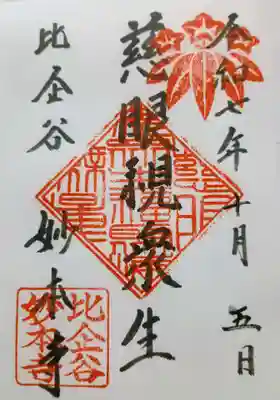 令和七年十月五日
慈眼視衆生
比企谷 妙本寺
比企谷
妙本寺